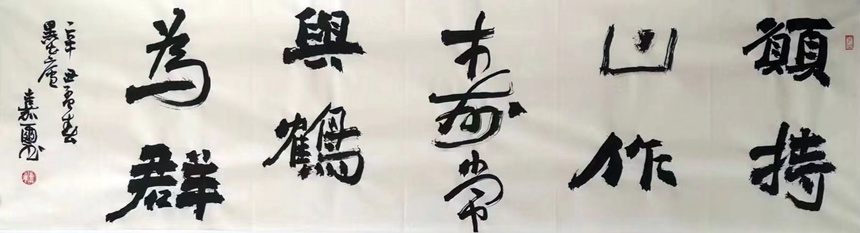 願持
山作
壽常
與鶴
為群
辛丑春
嘉